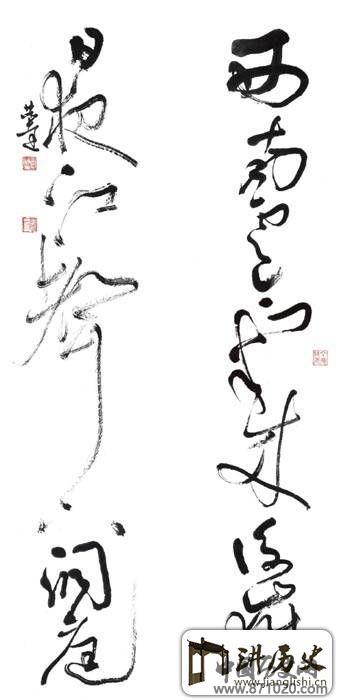 西南雲氣來衡嶽
日夜江聲下洞庭
讲历史
www.jianglishi.cn
www.871020.com